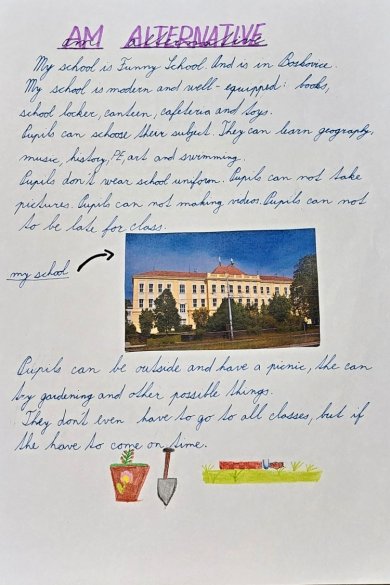 AM ALTERNATIVE
am alternative
My school is Funny School. And is in Boskovice.
My school is modern and well-equipped: books,
school locker, canteen, cafeteria and toys.
Pupils can schoose therr subject. They can learn geography,
music, history, PE, art and swimming.
Pupils don't wear school uniform. Pupils can not take
pictures. Pupils can not making videos. Pupils can not
to be late for class.
my school
Pupils can be outside and have a picnic, the can
try gardening and other possible things.
They don't even have to go to all classes, but if
the have to come on time.